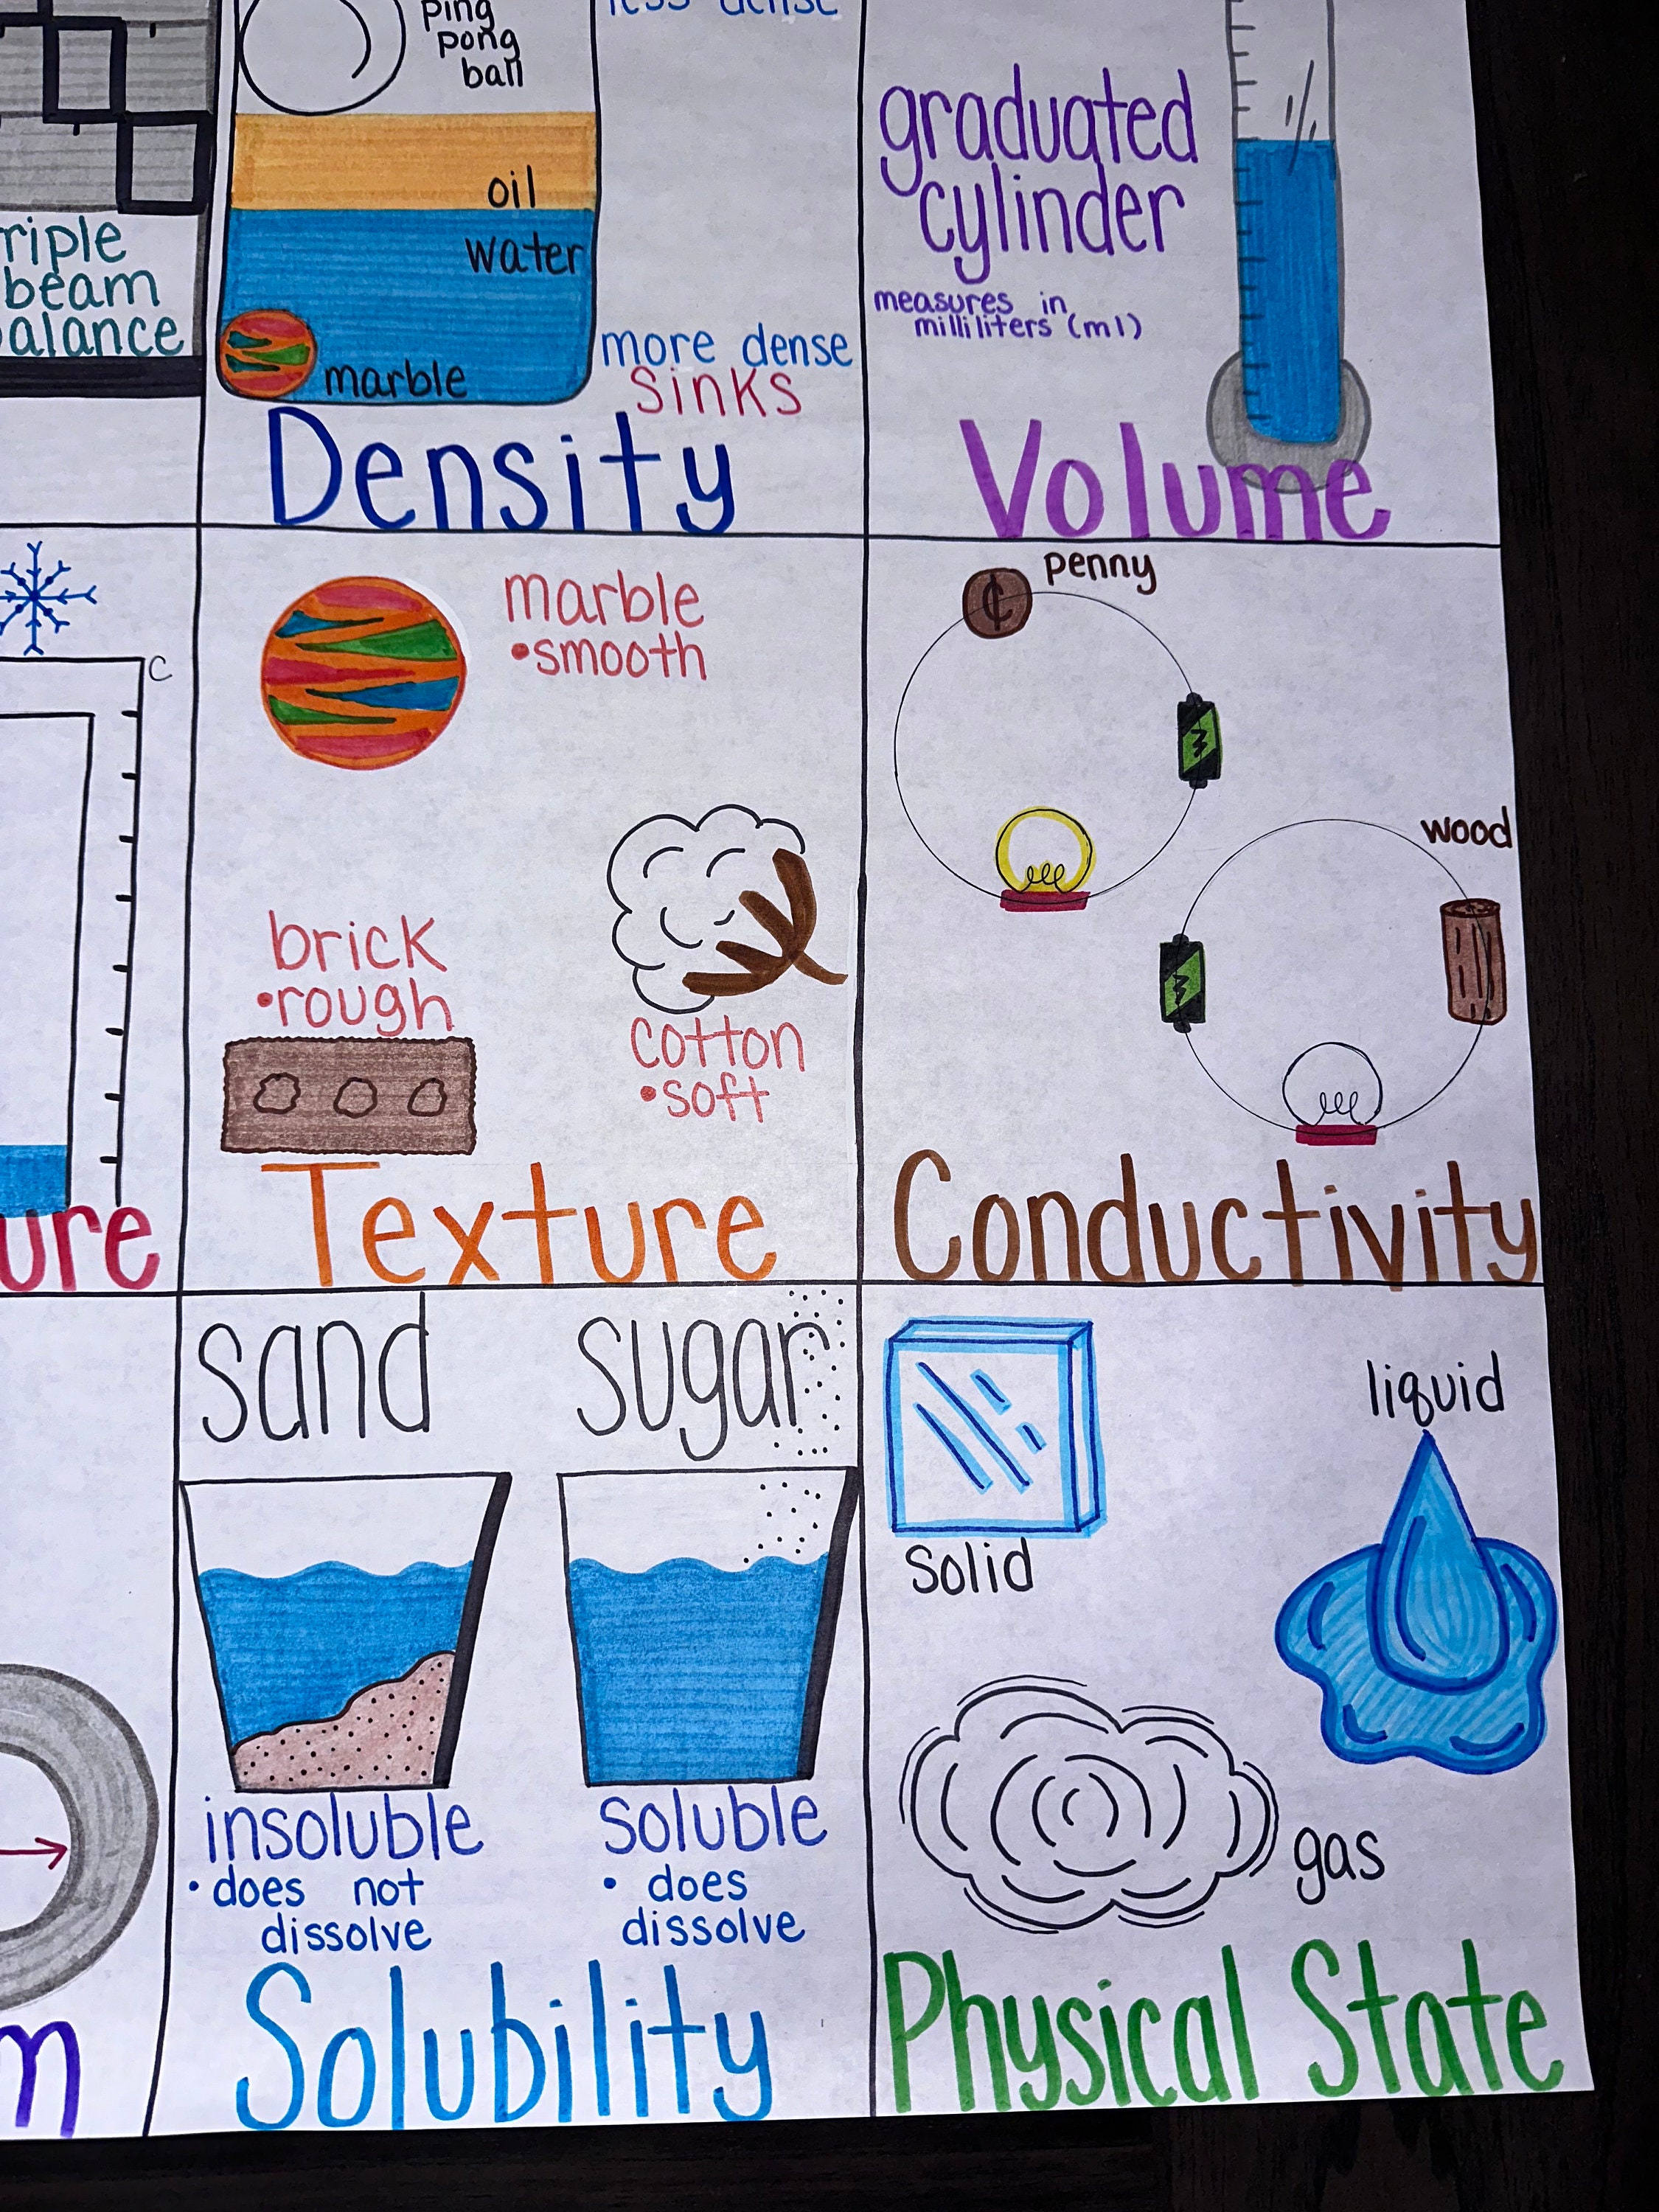 ping
pong
ball
less dense
oil
water
marble
more dense
sinks
Density
riple
beam
alance
graduated
cylinder
measures in
milliliters (ml)
Volume
C
ure
marble
•smooth
brick
•rough
cotton
•soft
Texture
¢
penny
wood
Conductivity
sand
sugar
insoluble
•does not
dissolve
soluble
• does
dissolve
Solubility
m
solid
liquid
gas
Physical State